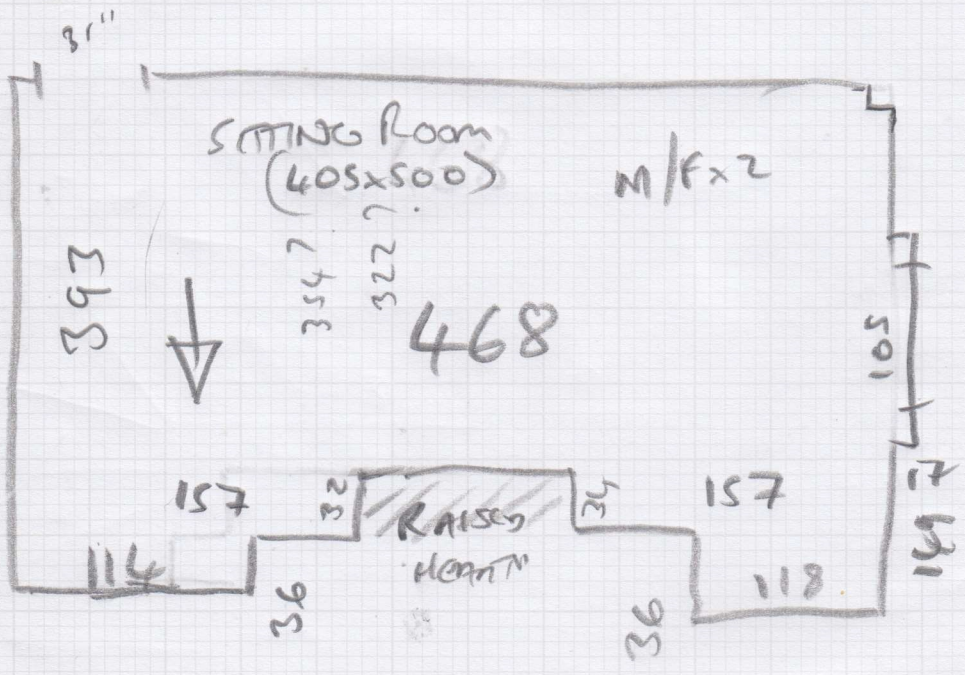 31"
SITTING ROOM
(405x500)
M/Fx2
393
354?
322?
468
105
157
32
RAISED
HEARTH
34
157
17
149
114
36
36
118